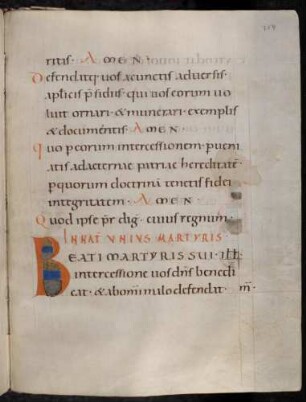 ritis· AMEN·
Defendatq; uos a cunctis aduersis·
aplicis p̄sidiis· qui uos eorum uo
luit ornari· & munerari· exemplis
& documentis· AMEN
Quo p eorum intercessionem· pueni
atis ad aeternae patriae hereditatē·
p quorum doctrinā tenetis fidei
integritatem· AMEN
Quod ipse pr̄ dig̅· cuius regnum·
IN NAT̄ UNIUS MARTYRIS
BEATI MARTYRIS SUI· ILL̄
intercessione uos dn̄s benedi
cat· & ab omni malo defendat· m̄·